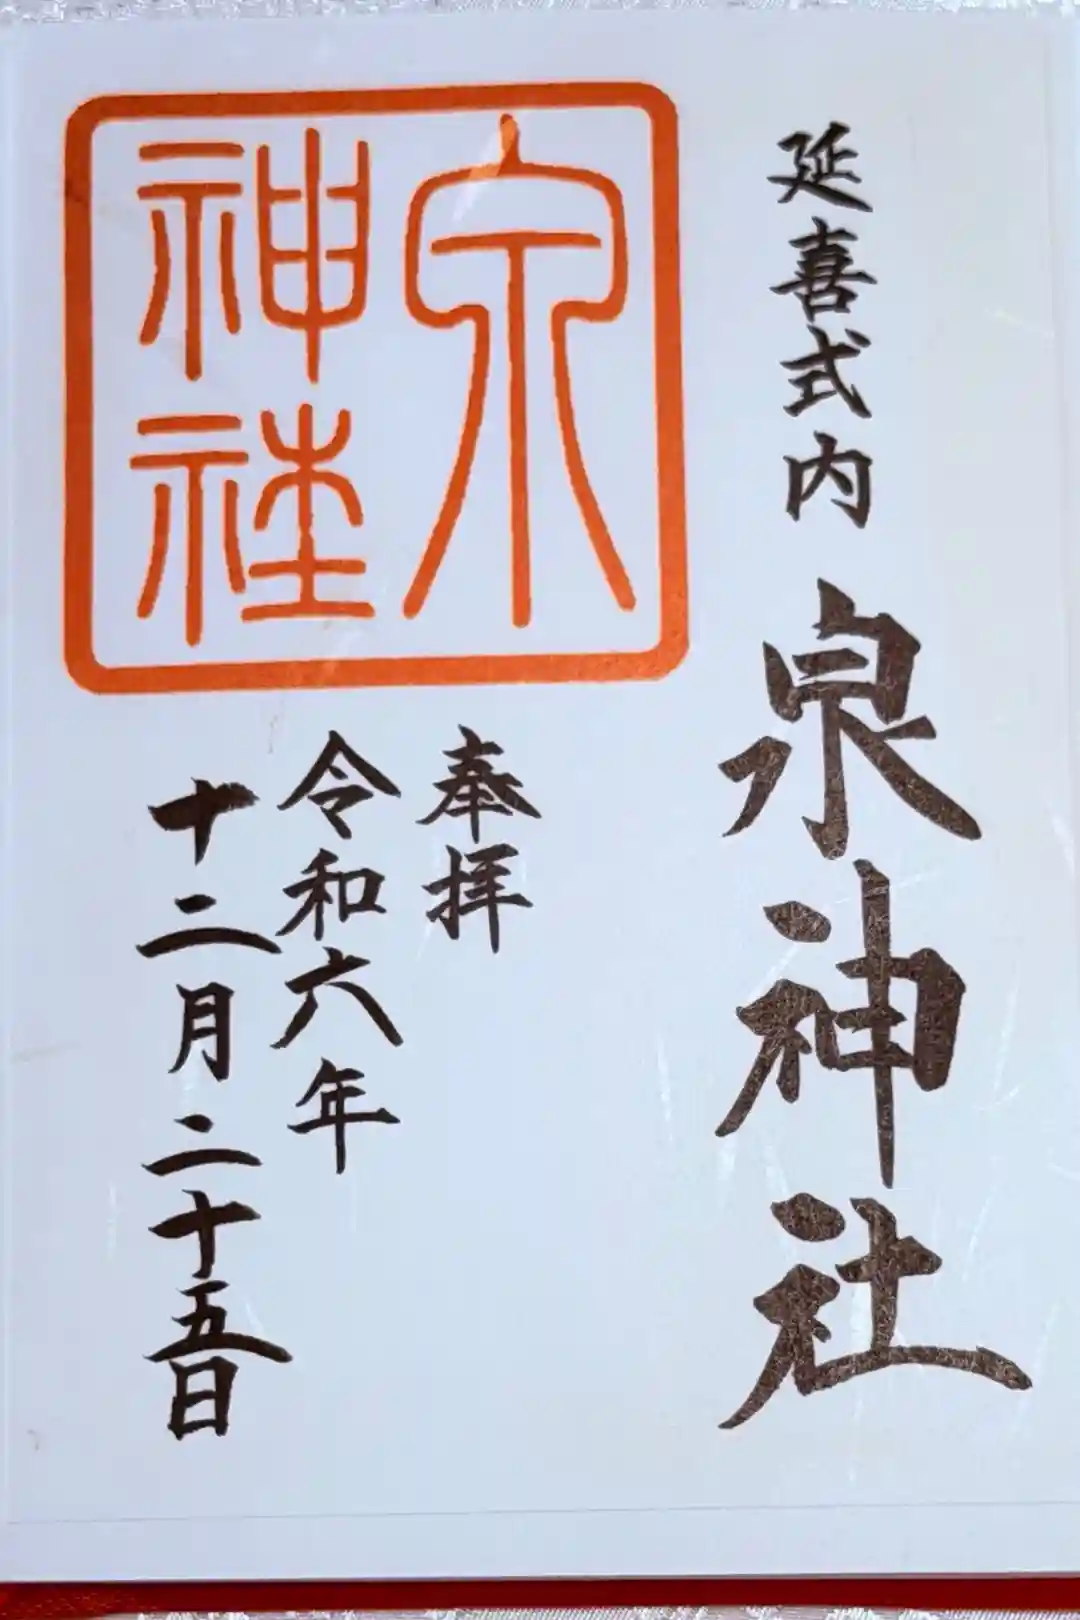 延喜式内 泉神社
泉
神社
奉拝
令和六年
十二月二十五日